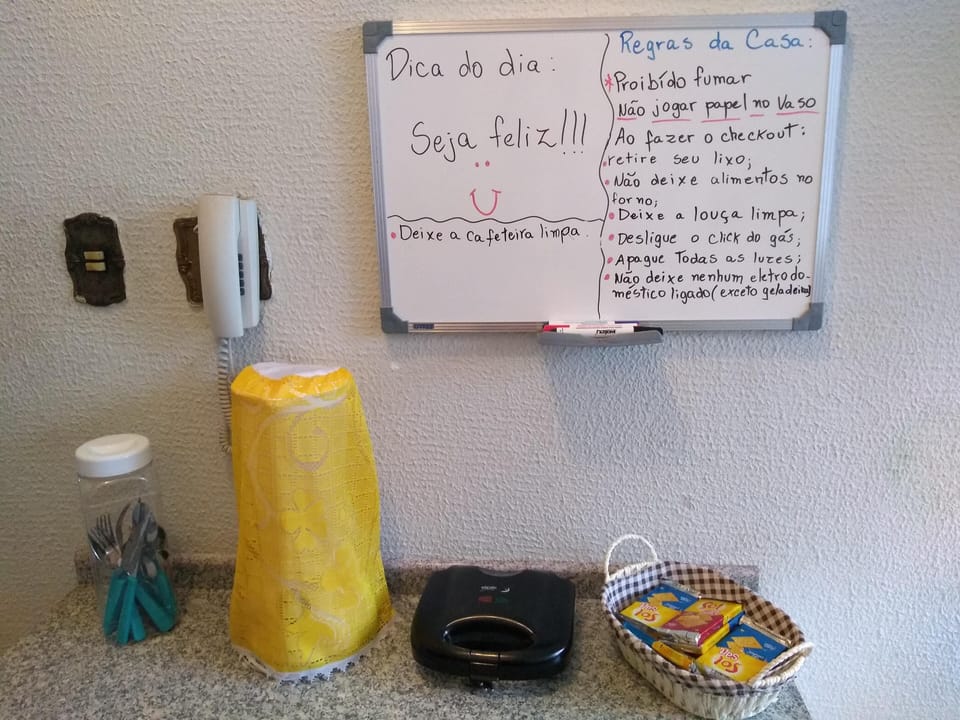 Dica do dia:
Seja feliz!!!
Deixe a cafeteira limpa.
Regras da Casa:
*Proibído fumar
Não jogar papel no Vaso
Ao fazer o checkout:
retire seu lixo;
Não deixe alimentos no
forno;
Deixe a louça limpa;
Desligue o click do gás;
Apague Todas as luzes;
Não deixe nenhum eletrodo-
méstico ligado (exceto geladeira)